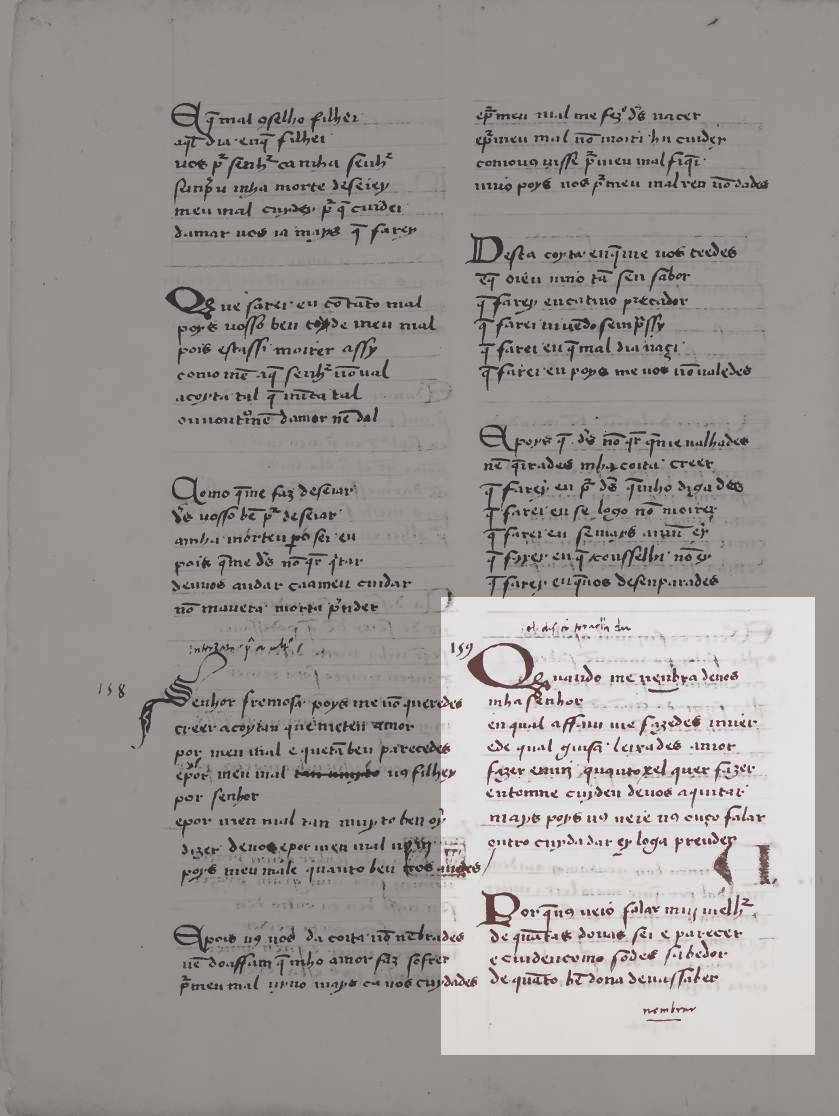 E q̄ mal cōselho filhei
aq̄l dia en q̄ filhei
uos pr̄ senhr̄ ca mha senhr̄
senpr̄ u mha morte deseiey
meu mal cuydey pr̄ q̄ cuidei
damar uos ia mays q̄ farey
Que farei eu cō tāto mal
poys uosso ben todo e meu mal
pois est assi moirer assy
como mē aq̄ senhr̄ nō ual
a coyta tal q̄ nūca tal
damor nē dal
Como q̄ me faz deseiar
d's uosso bē pr̄ deseiar
a mha morte
pois q̄ me d's nō qr̄ q̄tar
de uos andar ca a meu cuidar
nō mauera morta pr̄nder
158
Senhor fremosa poys me nō queredes
creer a coyta n que me ten amor
por meu mal e que tā ben parecedes
e por meu mal uꝯ filhey
por senhor
e por meu mal tan muyto ben oy
dizer de uos e por meu mal uꝯ ui
poys meu mal e quanto ben uos auedes
E pois uꝯ uos da coita nō nēbrades
nē do affam q̄ mho amor faz sofrer
pr̄ meu mal uyuo mays ca uos cuydades
e pr̄ meu mal me fezo d's nacer
e pr̄ meu mal nō moiri hu cuidey
como uꝯ uisse pr̄ meu mal fiq̄i
uiuo poys uos pr̄ meu mal ren nō dades
Desta coyta en q̄ me uos teedes
en q̄ oieu uiuo tā sen sabor
q̄ farey eu catiuo pecador
q̄ farei uiuēdo senpr̄ssy
q̄ farei eu q̄ mal dia naçi
q̄ farei eu poys me uos nō ualedes
E poys q̄ d's nō qr̄ q̄ me ualhades
nē q̄irades mha coita creer
q̄ farey eu pr̄ d's q̄ mho digades
q̄ farei eu se logo nō moirer
q̄ farei eu se mays a uiu ey
q̄ farey eu q̄ cousselh i nō ey
q̄ farey eu q̄ uos desenparades
159
Quando me nenbra de uos
mha senhor
en qual affam me fazedes uiuer
e de qual guisa leixades amor
fazer en mī quanto xel quer fazer
entom me cuyden de uos a quitar
mays poys uꝯ ueie uꝯ ouço falar
outro cuydad ar ey log a prender
Por q̄ uꝯ ueio falar muj melhr̄
de quātas donas sei e parecer
e cuid en como sodes sabedor
de quāto bē dona deuassaber
nembrar